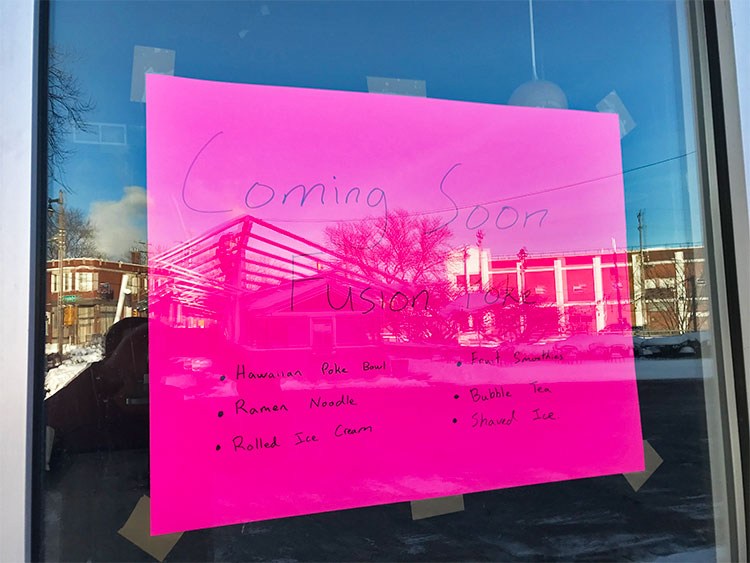 Coming Soon
Fusion Poke
• Hawaiian Poke Bowl
• Ramen Noodle
• Rolled Ice Cream
• Fruit Smoothies
• Bubble Tea
• Shaved Ice